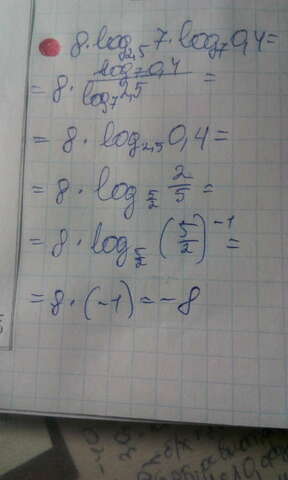 8·log₂,₅ 7·log₇ 0,4=
=8· log₇ 0,4 / log₇ 2,5 =
=8·log₂,₅ 0,4=
=8·log_{5/2} 2/5=
=8·log_{5/2} (5/2)⁻¹=
=8·(-1)=-8